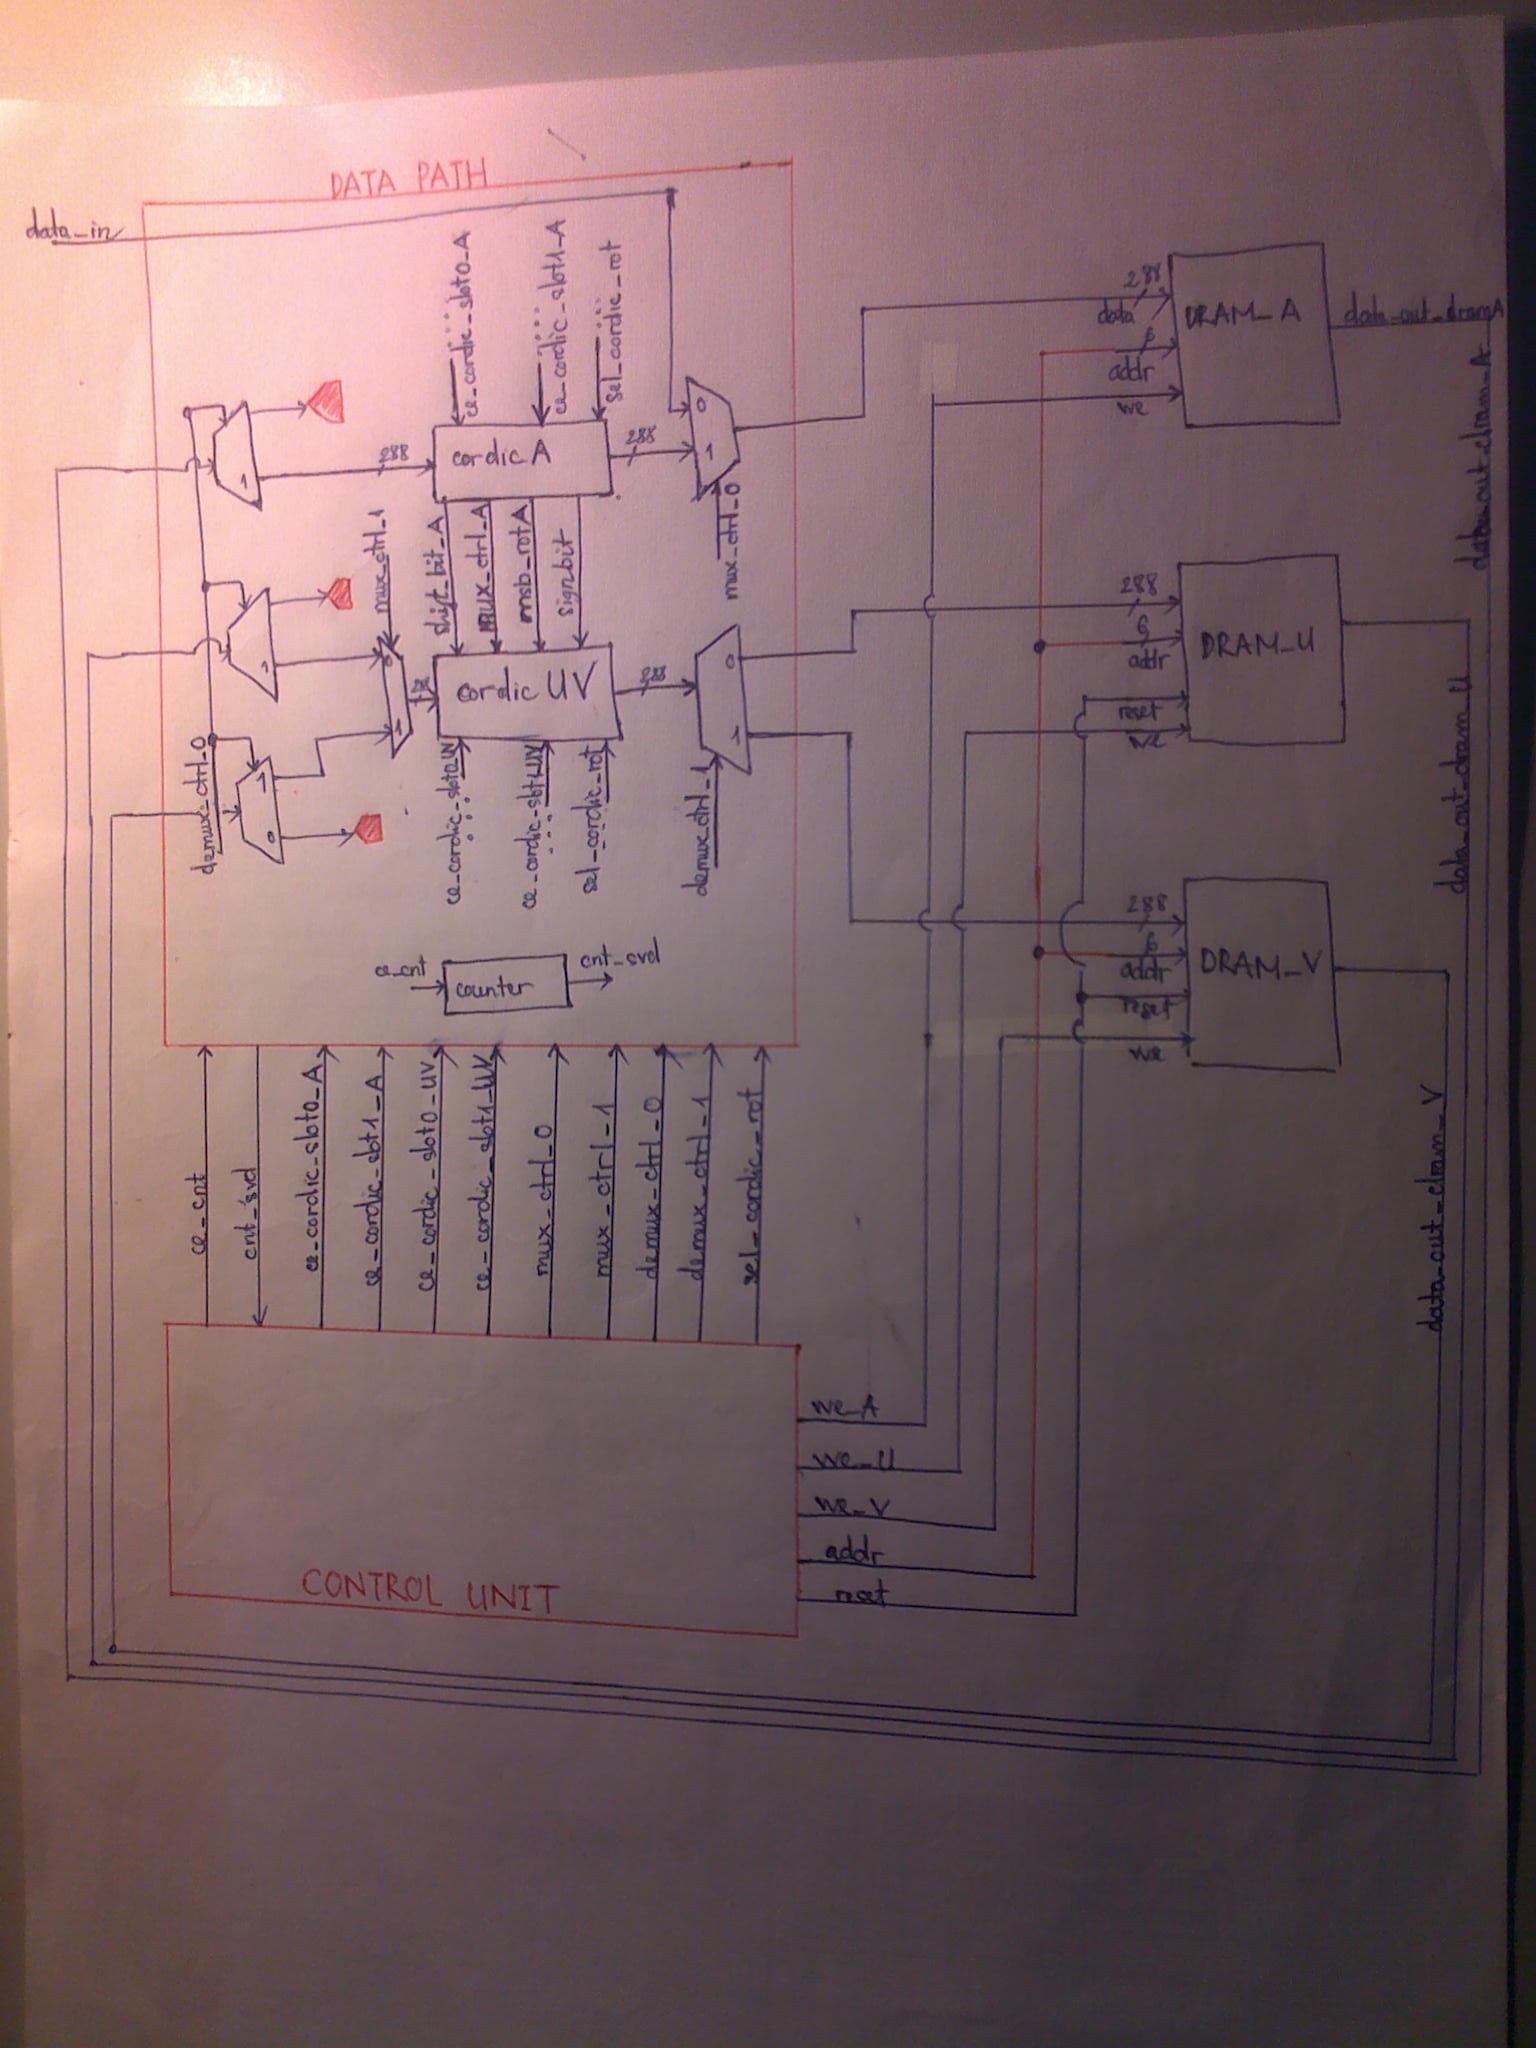 DATA PATH
data_in
ce_cordic_slot0_A
ce_cordic_slot1_A
sel_cordic_rot
288
cordic A
288
0
1
mux_ctrl_0
1
mux_ctrl_1
shift_bit_A
MUX_ctrl_A
msb_rotA
signbit
1
0
1
cordic UV
288
0
1
demux_ctrl_1
demux_ctrl_0
1
0
ce_cordic_slot0_UV
ce_cordic_slot1_UV
sel_cordic_rot
ce_cnt
counter
cnt_svd
288
data
6
addr
we
DRAM_A
data_out_dramA
data_out_dram_A
288
6
addr
reset
we
DRAM_U
data_out_dram_U
288
6
addr
reset
we
DRAM_V
data_out_dram_V
ce_cnt
cnt_svd
ce_cordic_slot0_A
ce_cordic_slot1_A
ce_cordic_slot0_UV
ce_cordic_slot1_UV
mux_ctrl_0
mux_ctrl_1
demux_ctrl_0
demux_ctrl_1
sel_cordic_rot
we_A
we_U
we_V
addr
reset
CONTROL UNIT